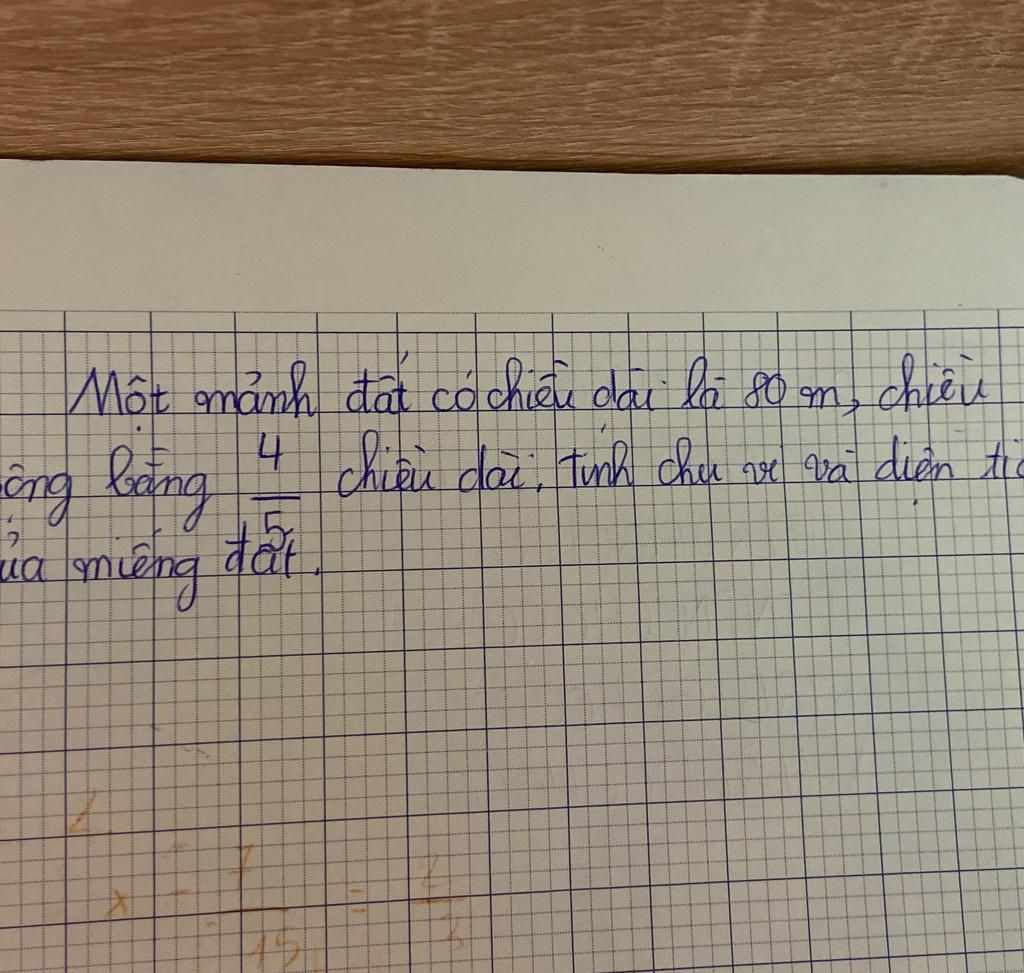 Một mảnh đất có chiều dài là 80 m, chiều
ông bằng 4/5 chiều dài, tính chu vi và diện tíc
ủa miếng đất.
x - 7/15 = 2/3